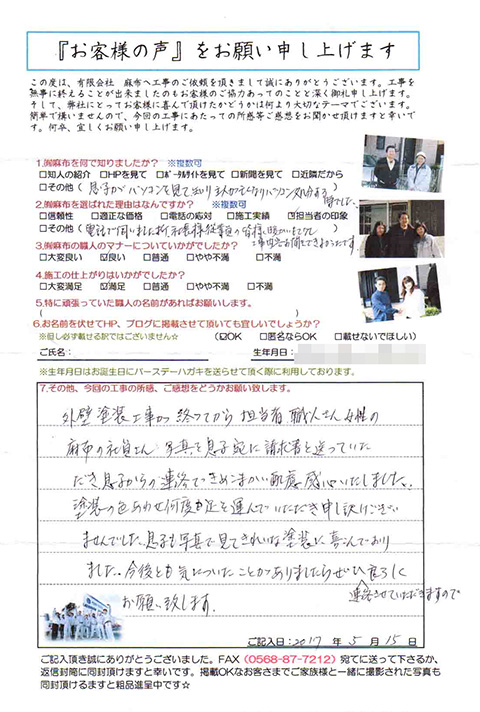 『お客様の声』をお願い申し上げます
この度は、有限会社 麻布へ工事のご依頼を頂きまして誠にありがとうございます。工事を
無事に終えることが出来ましたのもお客様のご協力あってのことと深く御礼申し上げます。
そして、弊社にとってお客様に喜んで頂けたかどうかは何より大切なテーマでございます。
簡単で構いませんので、今回の工事にあたっての所感等ご感想をお聞かせ頂けますと幸いで
す。何卒、宜しくお願い申し上げます。
1.㈲麻布を何で知りましたか? ※複数可
□知人の紹介 □HPを見て □ポータルサイトを見て □新聞を見て □近隣だから
□その他(息子がパソコンを見て知り
2.㈲麻布を選ばれた理由はなんですか? ※複数可
□信頼性 □適正な価格 □電話の応対 □施工実績 ☑担当者の印象
□その他(
3.㈲麻布の職人のマナーについていかがでしたか?
□大変良い ☑良い □普通 □やや不満 □不満
4.施工の仕上がりはいかがでしたか?
□大変満足 ☑満足 □普通 □やや不満 □不満
5.特に頑張っていた職人の名前があればお願いします。
( )
6.お名前を伏せてHP、ブログに掲載させて頂いても宜しいでしょうか?
※但し必ず載せる訳ではございません☆ (☑OK □匿名ならOK □載せないでほしい)
ご氏名: 生年月日:
※生年月日はお誕生日にバースデーハガキを送らせて頂く際に利用しております。
7.その他、今回の工事の所感、ご感想をどうかお願い致します。
外壁塗装工事が終ってから担当者 職人さん 女性の
麻布の社員さん 写真を息子宛に請求書を送っていた
だき息子からの連絡できめこまかい配慮感心いたしました。
塗装の色あわせ何度も足を運んでいただき申し訳けござい
ませんでした。息子も写真で見てきれいな塗装に喜んでおり
ました。今後とも気についたことがありましたらぜひ 宜ろしく
連絡させていただきますので
お願い致します。
ご記入日:2017 年 5 月 15 日
ご記入頂き誠にありがとうございました。FAX (0568-87-7212) 宛てに送って下さるか、
返信封筒に同封頂けますと幸いです。掲載OKなお客さまでご家族様と一緒に撮影された写真も
同封頂けますと粗品進呈中です☆